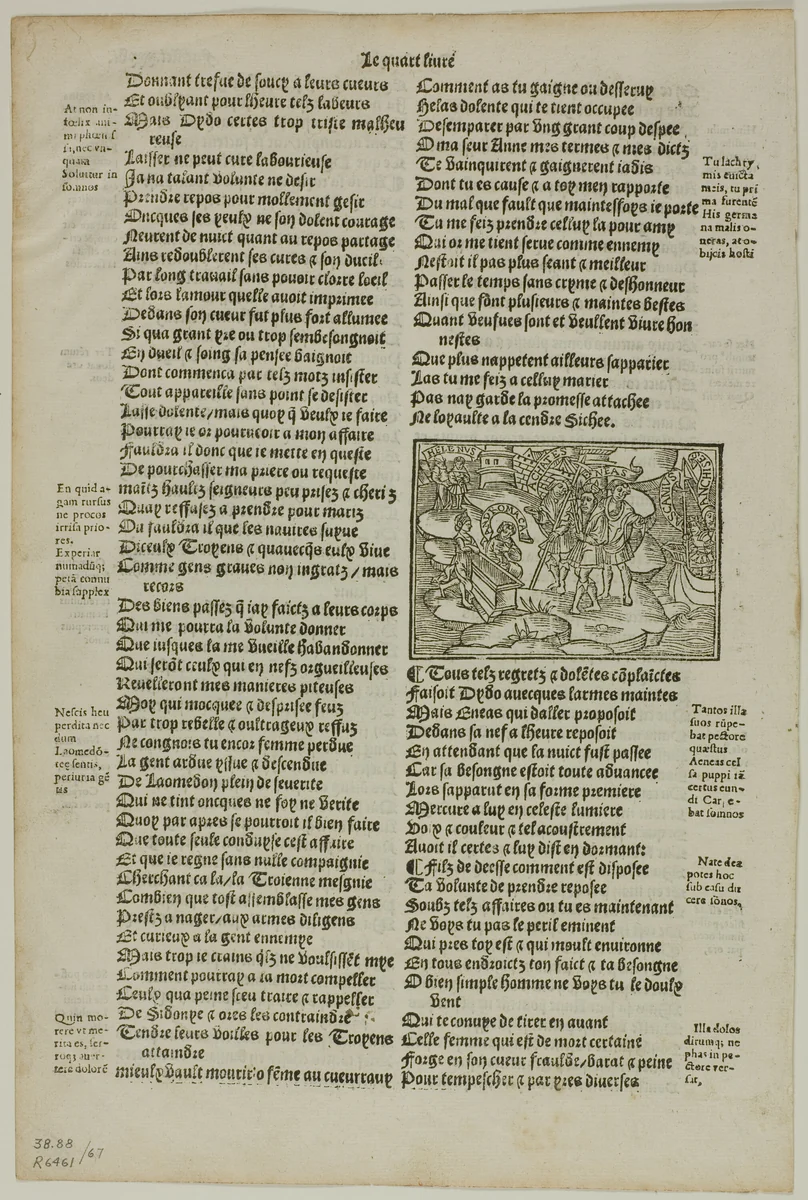 Le quart livre
Donnant trefue de soucy a leurs cueurs
Et oublyant pour lheure telz labeurs
Mais Dydo certes trop triste malheu
reuse
Laisser ne peut cure labourieuse
Ja na talant volunte ne desir
Prendre repos pour mollement gesir
Oncques ses yeulx ne son dolent courage
Neurent de nuict quant au repos partage
Ains redoublerent ses cures ⁊ son dueil
Par long travail sans povoir clorre loeil
Et lors lamour quelle avoit imprimee
Dedans son cueur fut plus fort allumee
Si qua grant yre ou trop sembesongnoit
En dueil ⁊ soing sa pensee baignoit
Dont commenca par telz motz insister
Tout appareille sans point se desister
Lasse dolente/mais quoy q̄ veulx ie faire
Pourray ie or pourveoir a mon affaire
Fauldra il donc que ie mette en queste
De pourchasser ma priere ou requeste
maītz haultz seigneurs peu prisez ⁊ cheriz
Quay reffusez a prendre pour mariz
Ou fauldra il que les navires suyve
Diceulx Troyens ⁊ quavecq̄s eulx vive
Comme gens graves non ingratz/mais
recors
Des biens passez q̄ iay faictz a leurs corps
Qui me pourra la volunte donner
Que iusques la me vueille habandonner
Qui serōt ceulx qui en nefz orgueilleuses
Revelleront mes manieres piteuses
Moy qui mocquee ⁊ desprisee feuz
Par trop rebelle ⁊ oultrageux reffuz
Ne congnois tu encor femme perdue
La gent ardue yssue ⁊ descendue
De Laomedon plein de severite
Qui ne tint oncques ne foy ne verite
Quoy par apres se pourroit il bien faire
Que toute seule conduyse cest affaire
Et que ie regne sans nulle compaignie
Cherchant ca la/la Troienne mesgnie
Combien que tost assemblasse mes gens
Prestz a nager/aux armes diligens
Et curieux a la gent ennemye
Mais trop ie crains q̄lz ne voulsissēt mye
Comment pourray a la mort compeller
Ceulx qua peine sceu traire ⁊ rappeller
De Sidonye ⁊ ores les contraindre
Tendre leurs voilles pour les Troyens
attaindre
mieulx vault mourir o fēme au cueur
At non in-
fœlix ani-
mi phœnissa
Soluitur in
somnos
En quid a-
gam rursus
ne procos
irrisa prio-
res.
Experiar
numadūq;
petā connu
bia supplex
Nescis heu
perdita nec
dum
Laomedō-
tee sentis,
periuria gē
tis
Quin mo-
rere vt me-
rita es, fer-
roq; auer-
te dolorē
Comment as tu gaigne ou desservy
Helas dolente qui te tient occupee
Desemparer par ung grant coup despee
O ma seur Anne mes termes ⁊ mes dictz
Te vainquirent ⁊ gaignerent iadis
Dont tu es cause ⁊ a toy men rapporte
Du mal que fault que maintesfoys ie porte
Tu me feiz prendre celluy la pour amy
Qui or me tient serve comme ennemy
Nestoit il pas plus seant ⁊ meilleur
Passer le temps sans cryme ⁊ deshonneur
Ainsi que sōnt plusieurs ⁊ maintes bestes
Quant veufves sont et veullent vivre hon
nestes
Que plus nappetent ailleurs sapparier
Las tu me feiz a celluy marier
Pas nay garde la promesse attachee
Ne loyaulte a la cendre Sichee.
Tu lachry.
mis euicta
meis, tu pri
ma furentē
His germa
na malis o-
neras, atq̄-
bijcis hosti
HELENVS
ANDROMACHE
ENEAS
ANCHISES
¶ Tous telz regretz ⁊ dolētes cōplaīctes
Faisoit Dydo avecques larmes maintes
Mais Eneas qui daller proposoit
Dedans sa nef a lheure reposoit
En attendant que la nuict fust passee
Car sa besongne estoit toute advancee
Lors sapparut en sa forme premiere
Mercure a luy en celeste lumiere
Voix ⁊ couleur ⁊ tel acoustrement
Avoit il certes ⁊ luy dist en dormant:
¶ Filz de deesse comment est disposee
Ta volunte de prendre reposee
Soubz telz affaires ou tu es maintenant
Ne voys tu pas le peril eminent
Qui pres toy est ⁊ qui moult environne
En tous endroictz ton faict ⁊ ta besongne
O bien simple homme ne voys tu le doulx
vent
Qui te convye de tirer en avant
Celle femme qui est de mort certaine
Forge en son cueur fraulde/barat ⁊ peine
Pour tempescher ⁊ par yres diverses
Tantos illa
suos rūpe-
bat pectore
quæstus
Aeneas cel
sa puppi iā
certus eun-
di Car, e-
bat somnos
Nate dea
potes hoc
sub casu du
cere sōnos.
Illa dolos
dirumq; ne
phas in pe-
ctore ver-
sat,
38.88
R6461 /67